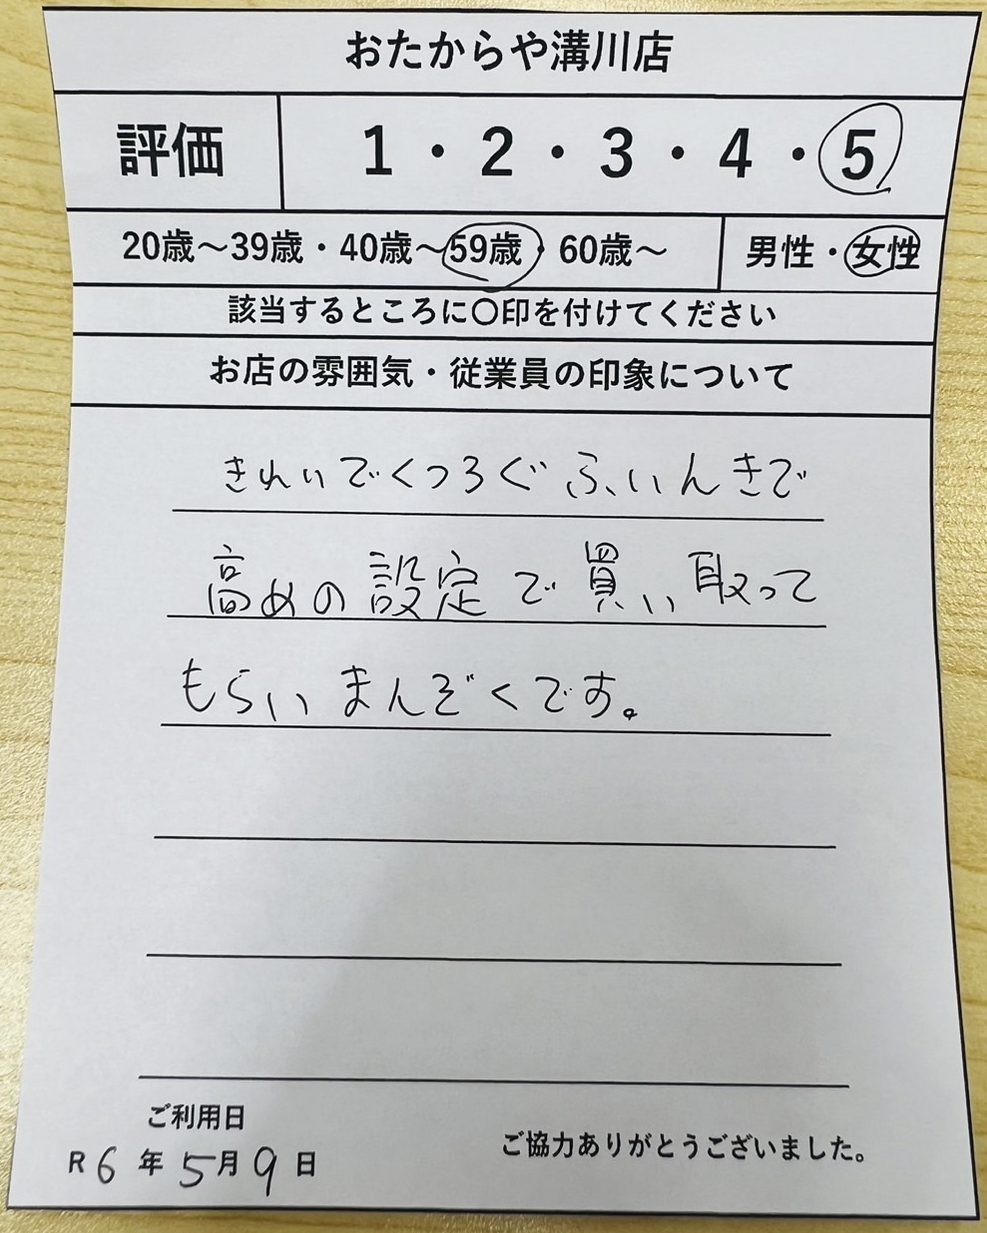 おたからや溝川店
評価 1・2・3・4・5
20歳〜39歳・40歳〜59歳・60歳〜 男性・女性
該当するところに〇印を付けてください
お店の雰囲気・従業員の印象について
きれいでくつろぐふいんきで
高めの設定で買い取って
もらいまんぞくです。
ご利用日
R6年5月9日
ご協力ありがとうございました。